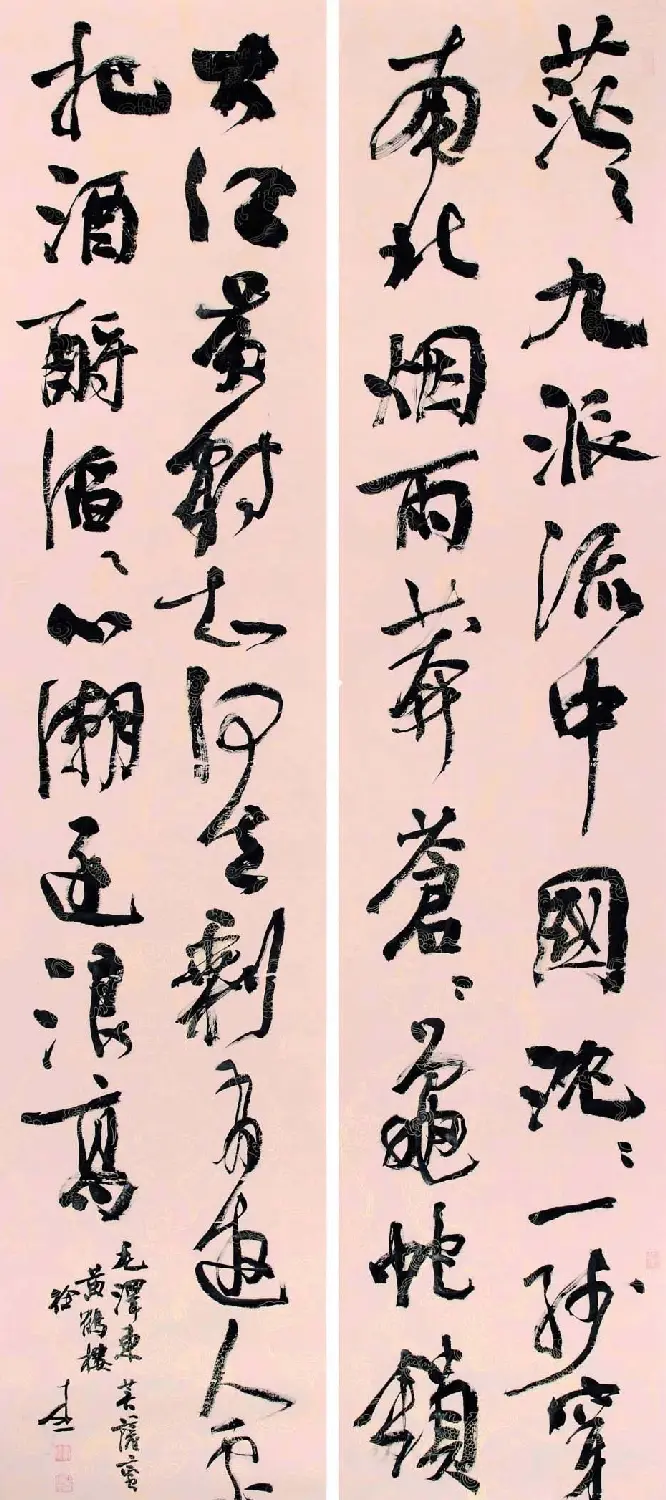 茫々九派流中國沈々一线穿
南北烟雨莽蒼々龜蛇鎖
大江黄鶴知何去剩有遊人處
把酒酹滔々心潮逐浪高
毛澤東菩薩蛮
黄鶴樓
徐